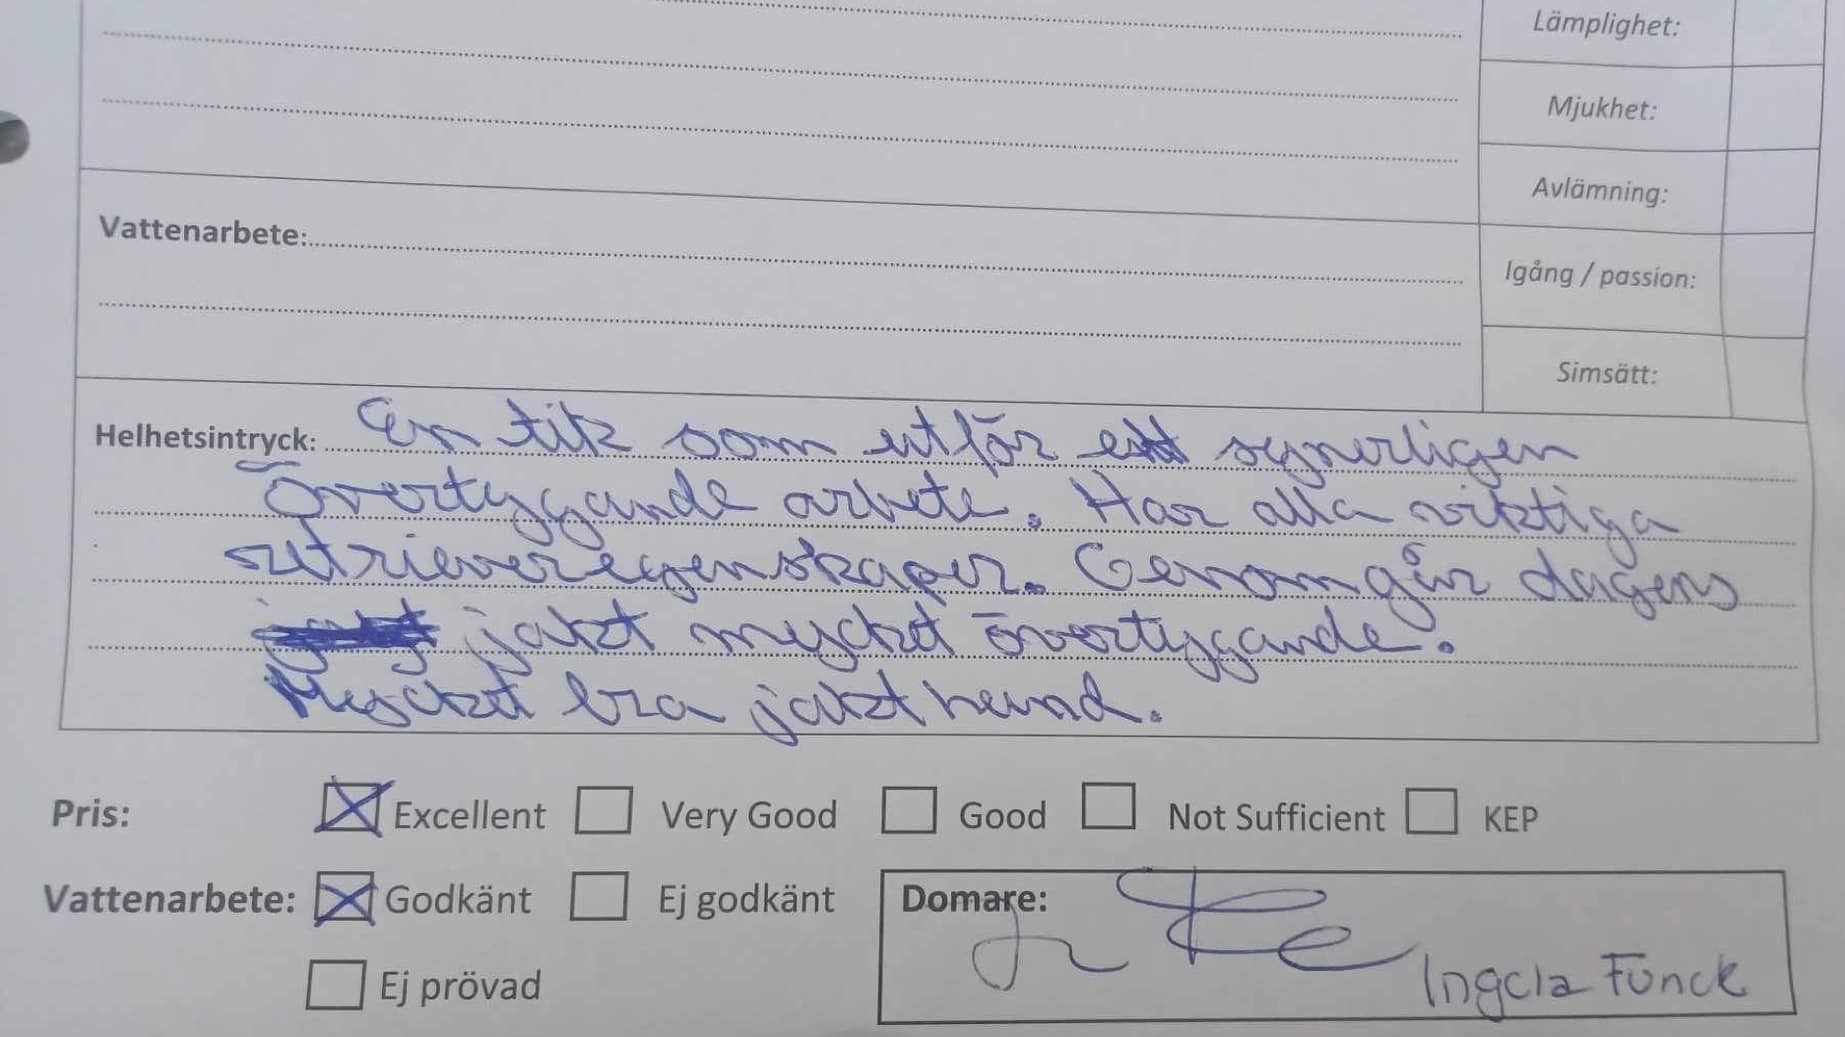 Lämplighet:
Mjukhet:
Avlämning:
Vattenarbete:
Igång / passion:
Simsätt:
Helhetsintryck: En tik som utför ett synerligen
övertygande arbete. Har alla viktiga
retrieveregenskaper. Genomgår dagens
jakt mycket övertygande.
Mycket bra jakthund.
Pris: Excellent Very Good Good Not Sufficient KEP
Vattenarbete: Godkänt Ej godkänt Domare:
Ingela Funck
Ej prövad